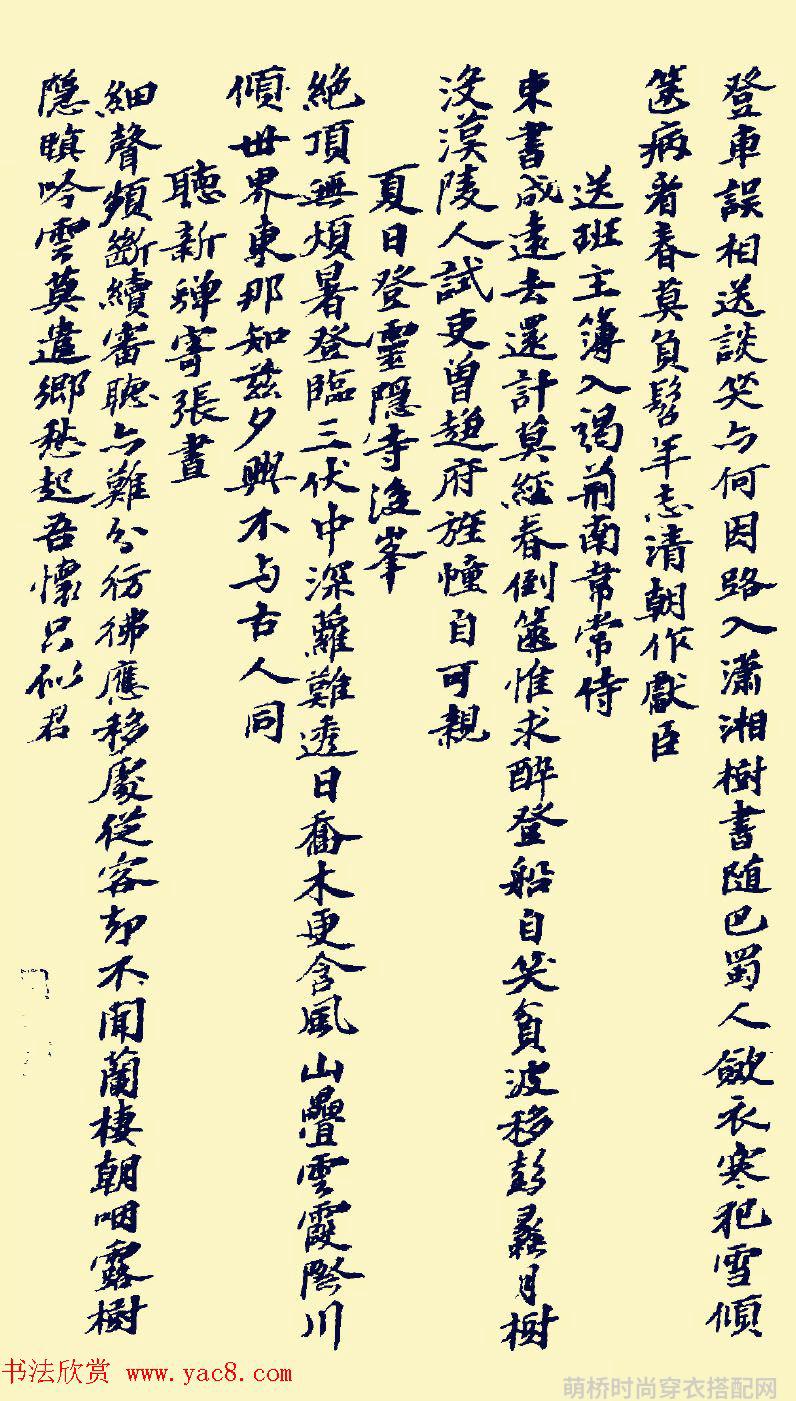 登車誤相送談笑与何因路入瀟湘樹書随巴蜀人斂衣寒犯雪傾
篋病看春莫負髫年志清朝作獻臣
送班主簿入謁荊南韋常侍
束書成遠去還計莫經春倒篋惟求醉登船自笑貧波移彭蠡月樹
没漢陵人試吏曾趨府旌幢自可親
夏日登靈隱寺後峯
絶頂無煩暑登臨三伏中深蘿難透日喬木更含風山疊雲霞際川
傾世界東那知兹夕興不与古人同
聽新蟬寄張晝
細聲頻斷續審聽亦難分彷彿應移處從容却不聞蘭棲朝咽露樹
隱暝吟雲莫遣鄉愁起吾懷只似君
书法欣赏 www.yac8.com
萌桥时尚穿衣搭配网